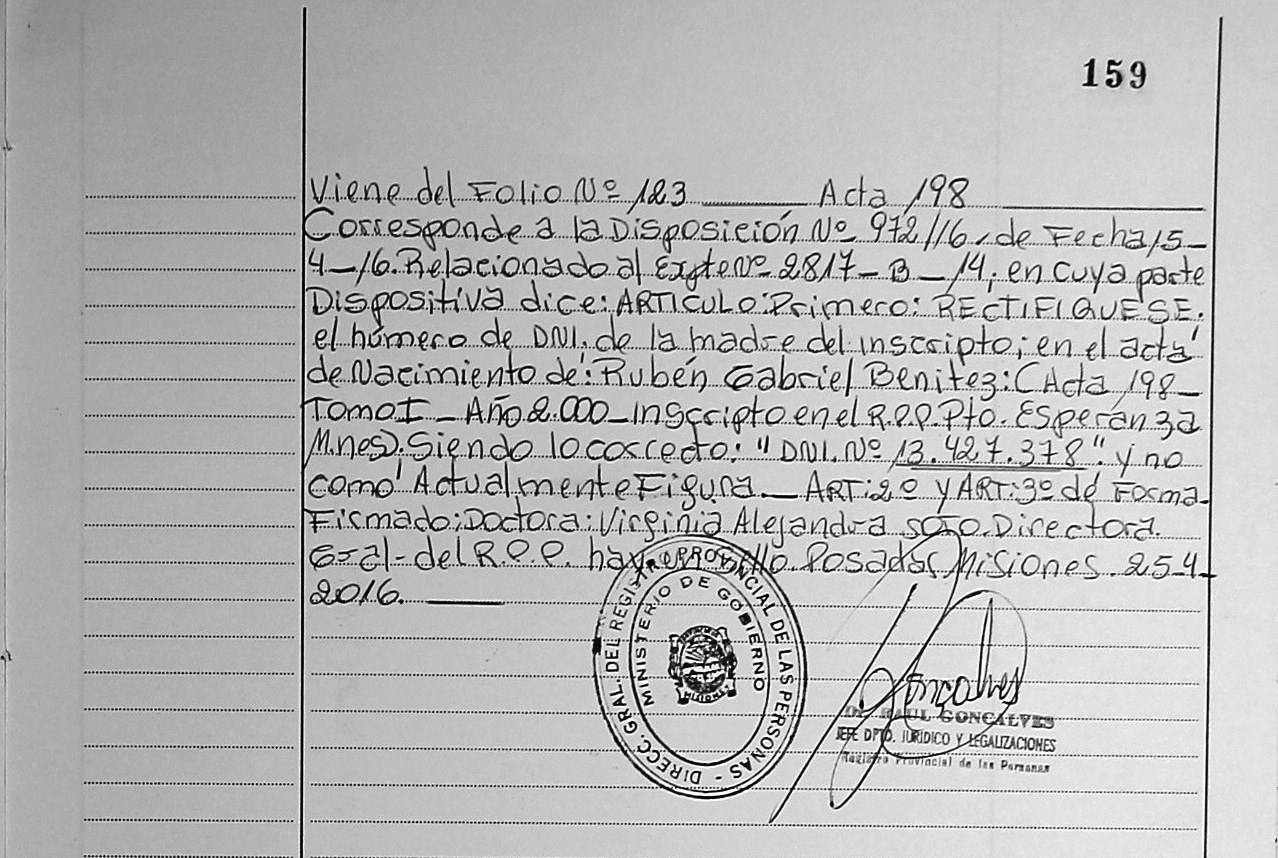 159
Viene del Folio Nº 123 ______ Acta 198 ______
Corresponde a la Disposición Nº 972/16, de Fecha 15-
4-16. Relacionado al Expte Nº 2817-B-14; en cuya parte
Dispositiva dice: ARTICULO: Primero: RECTIFIQUESE.
el número de DNI. de la madre del inscripto; en el acta
de Nacimiento de: Rubén Gabriel Benitez: (Acta 198-
Tomo I - Año 2.000 - Inscripto en el R.P.P. Pto. Esperanza
Mnes). Siendo lo correcto: "DNI. Nº 13.427.378". y no
como Actualmente Figura. - ART: 2º y ART: 3º de Forma-
Firmado: Doctora: Virginia Alejandra Soto. Directora.
Gral- del R.P.P. hay un sello. Posadas Misiones 25-4-
2016. ______
DIRECC. GRAL. DEL REGISTRO PROVINCIAL DE LAS PERSONAS -
MINISTERIO DE GOBIERNO
MISIONES
Goncalves
Dr. RAUL GONCALVES
JEFE DPTO. JURIDICO Y LEGALIZACIONES
Registro Provincial de las Personas